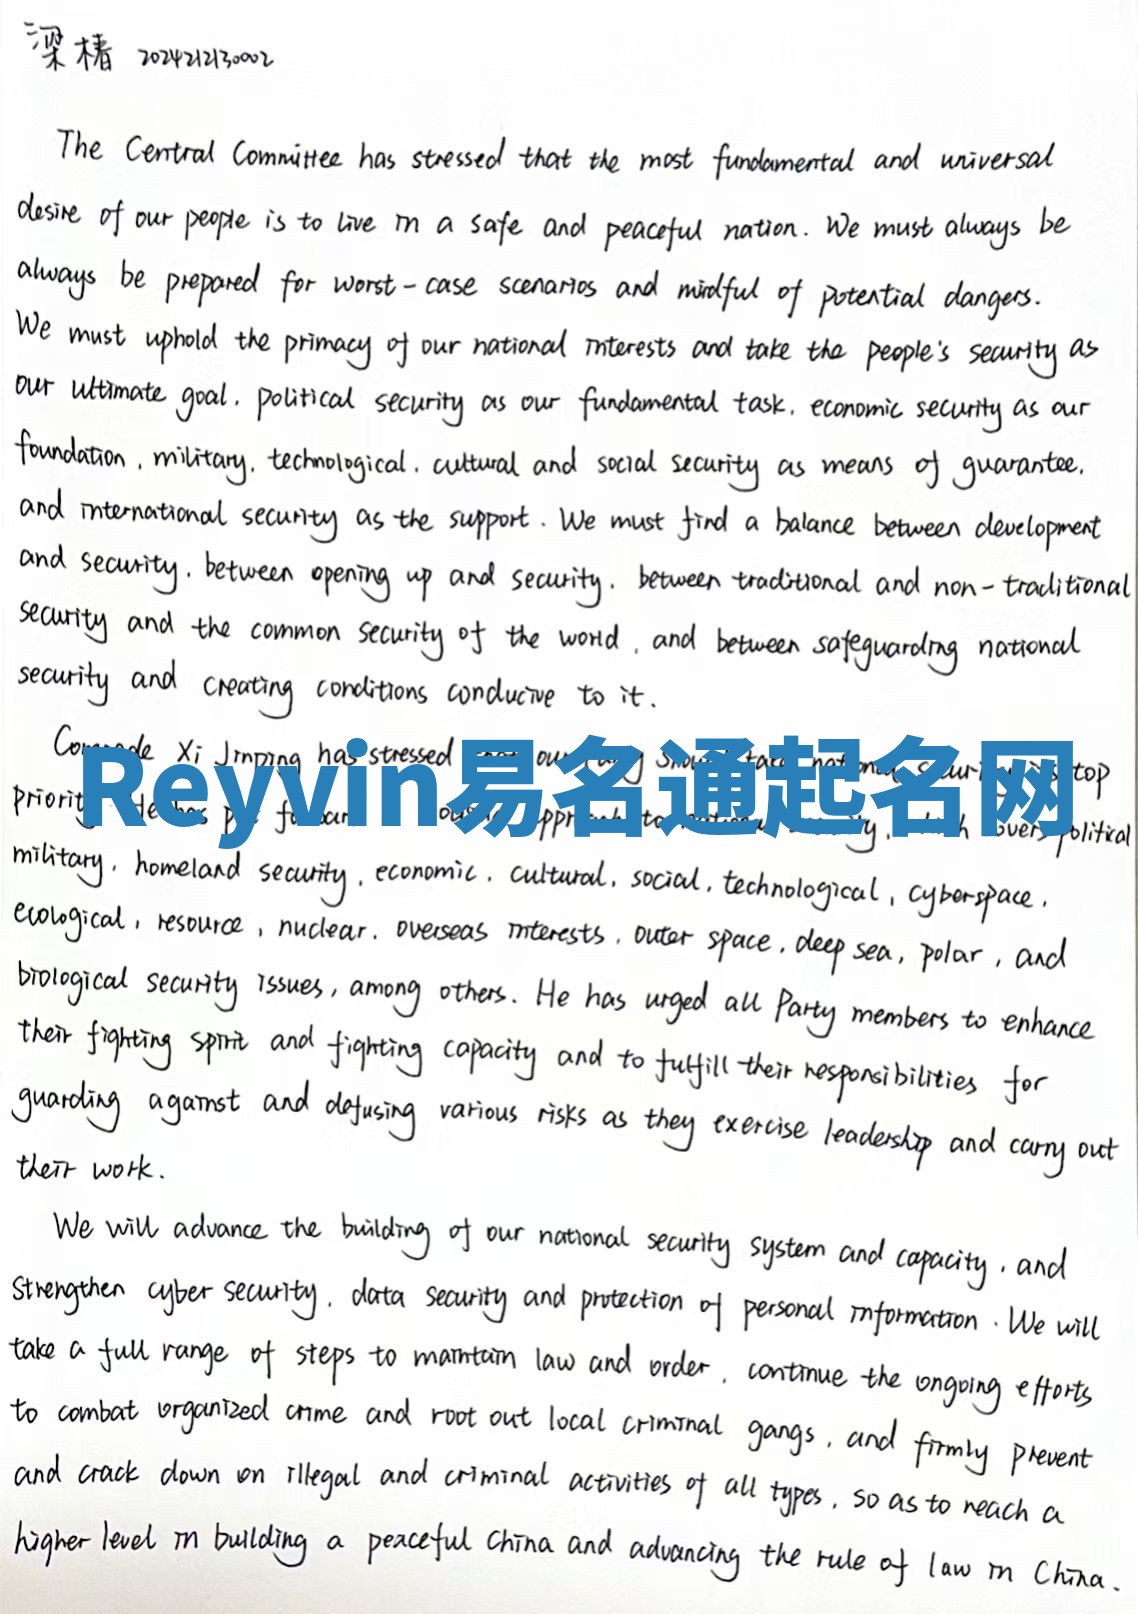 梁椿 2024212130002
The Central Committee has stressed that the most fundamental and universal
desire of our people is to live in a safe and peaceful nation. We must always be
always be prepared for worst-case scenarios and mindful of potential dangers.
We must uphold the primacy of our national interests and take the people's security as
our ultimate goal, political security as our fundamental task, economic security as our
foundation, military, technological, cultural and social security as means of guarantee,
and international security as the support. We must find a balance between development
and security, between opening up and security, between traditional and non-traditional
security and the common security of the world, and between safeguarding national
security and creating conditions conducive to it.
Comrade Xi Jinping has stressed our top
Reyvin易名通起名网
priority. He has to political
military, homeland security, economic, cultural, social, technological, cyberspace,
ecological, resource, nuclear, overseas interests, outer space, deep sea, polar, and
biological security issues, among others. He has urged all Party members to enhance
their fighting spirit and fighting capacity and to fulfill their responsibilities for
guarding against and defusing various risks as they exercise leadership and carry out
their work.
We will advance the building of our national security system and capacity, and
strengthen cyber security, data security and protection of personal information. We will
take a full range of steps to maintain law and order, continue the ongoing efforts
to combat organized crime and root out local criminal gangs, and firmly prevent
and crack down on illegal and criminal activities of all types, so as to reach a
higher level in building a peaceful China and advancing the rule of law in China.